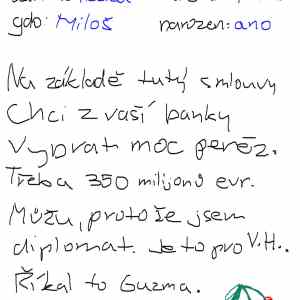 gdo: Miloš narozen: ano
Na základě tutý smlouvy
Chci z vaší banky
vybrat moc peněz.
Třeba 350 milijonů evr.
Můžu, protože jsem
diplomat. Je to pro V.H..
Říkal to Guzma.